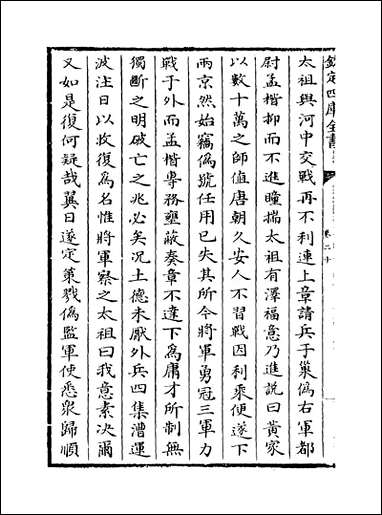 欽定四庫全書
卷二十
太祖與河中交戰再不利連上章請兵于巢偽右軍都
尉孟楷抑而不進瞳揣太祖有澤福意乃進説曰黄家
以數十萬之師值唐朝久安人不習戰因利乘便遂下
兩京然始竊偽號任用已失其所今將軍勇冠三軍力
戰于外而孟楷專務壅蔽奏章不達下為庸才所制無
獨斷之明破亡之兆必矣况土德未厭外兵四集漕運
波注日以收復為名惟將軍察之太祖曰我意素决爾
又如是復何疑哉翼日遂定策戮偽監軍使悉衆歸順